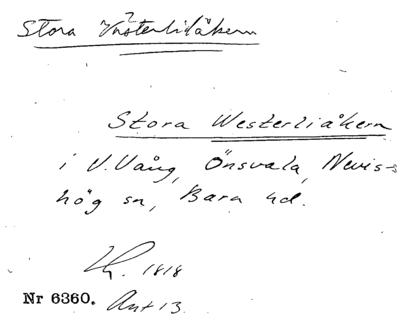 ?
Stora Vnsterliåkern
Stora Westerliåkern
i V. Vång, Önsvala, Nevis-
hög sn, Bara hd.
1818
Nr 6360. Akt 13.